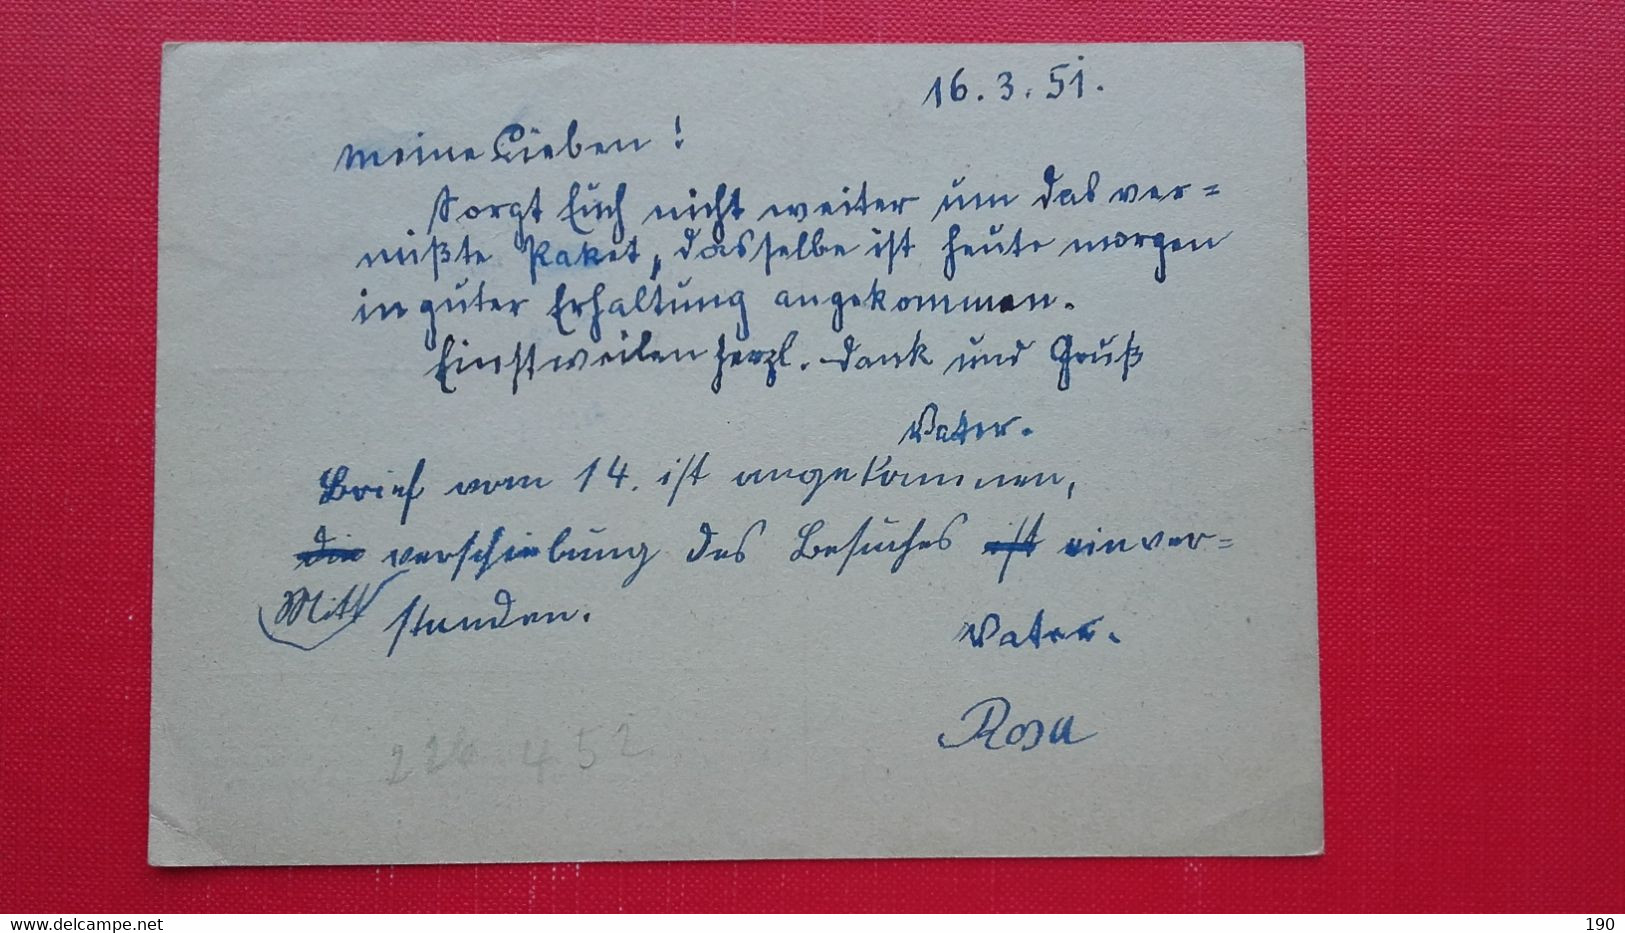 16.3.51.
Meine Lieben!
Sorgt Euch nicht weiter um das ver=
mißte Paket, dasselbe ist heute morgen
in guter Erhaltung angekommen.
Einstweilen herzl. Dank und Gruß
Vater.
Brief vom 14. ist angekommen,
die verschiebung des Besuches ist einver=
Mitt standen.
Vater.
Rosa
226.4 52
delcampe.net
monamoja
190